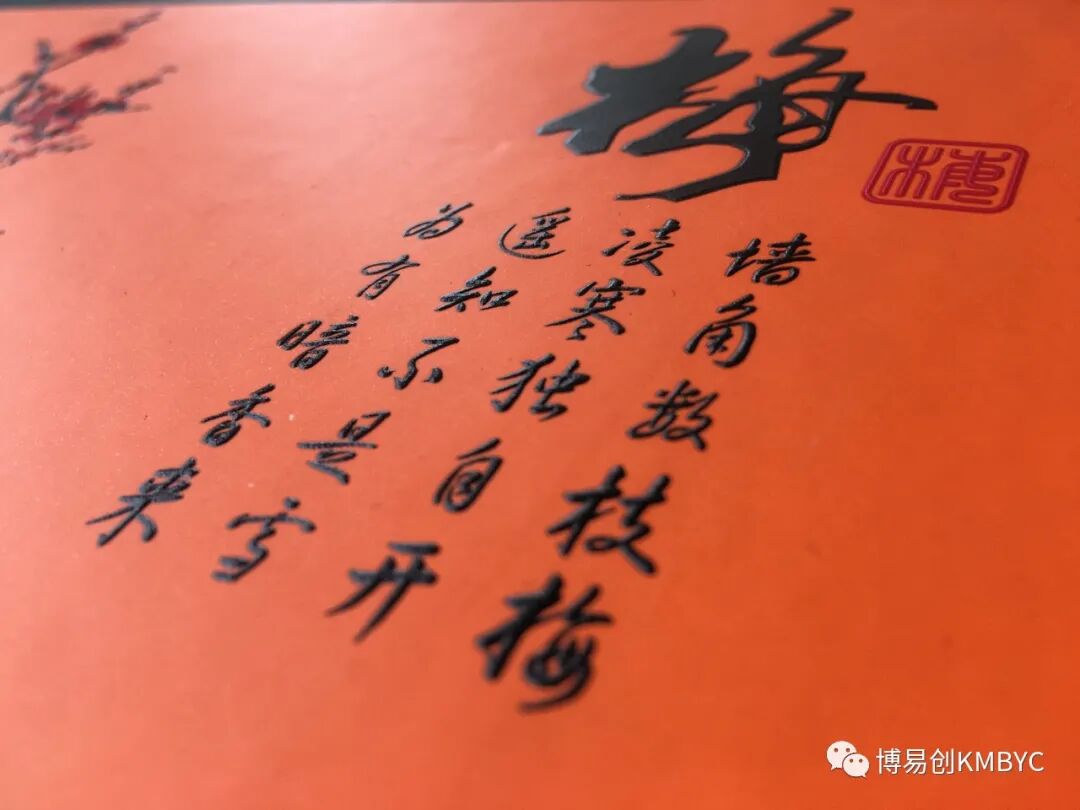 梅
梅
墙角数枝梅
凌寒独自开
遥知不是雪
为有暗香来
博易创KMBYC